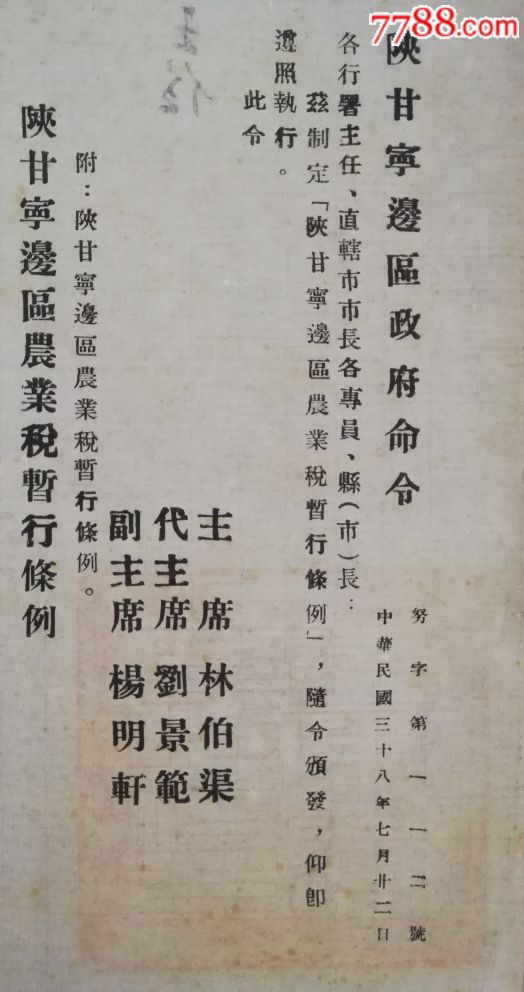 7788.com
陝甘寧邊區政府命令
努字第一一三號
中華民國三十八年七月廿二日
各行署主任、直轄市市長各專員、縣(市)長:
茲制定「陝甘寧邊區農業稅暫行條例」,隨令頒發,仰卽
遵照執行。
此令
主席林伯渠
代主席劉景範
副主席楊明軒
附:陝甘寧邊區農業稅暫行條例。
陝甘寧邊區農業稅暫行條例